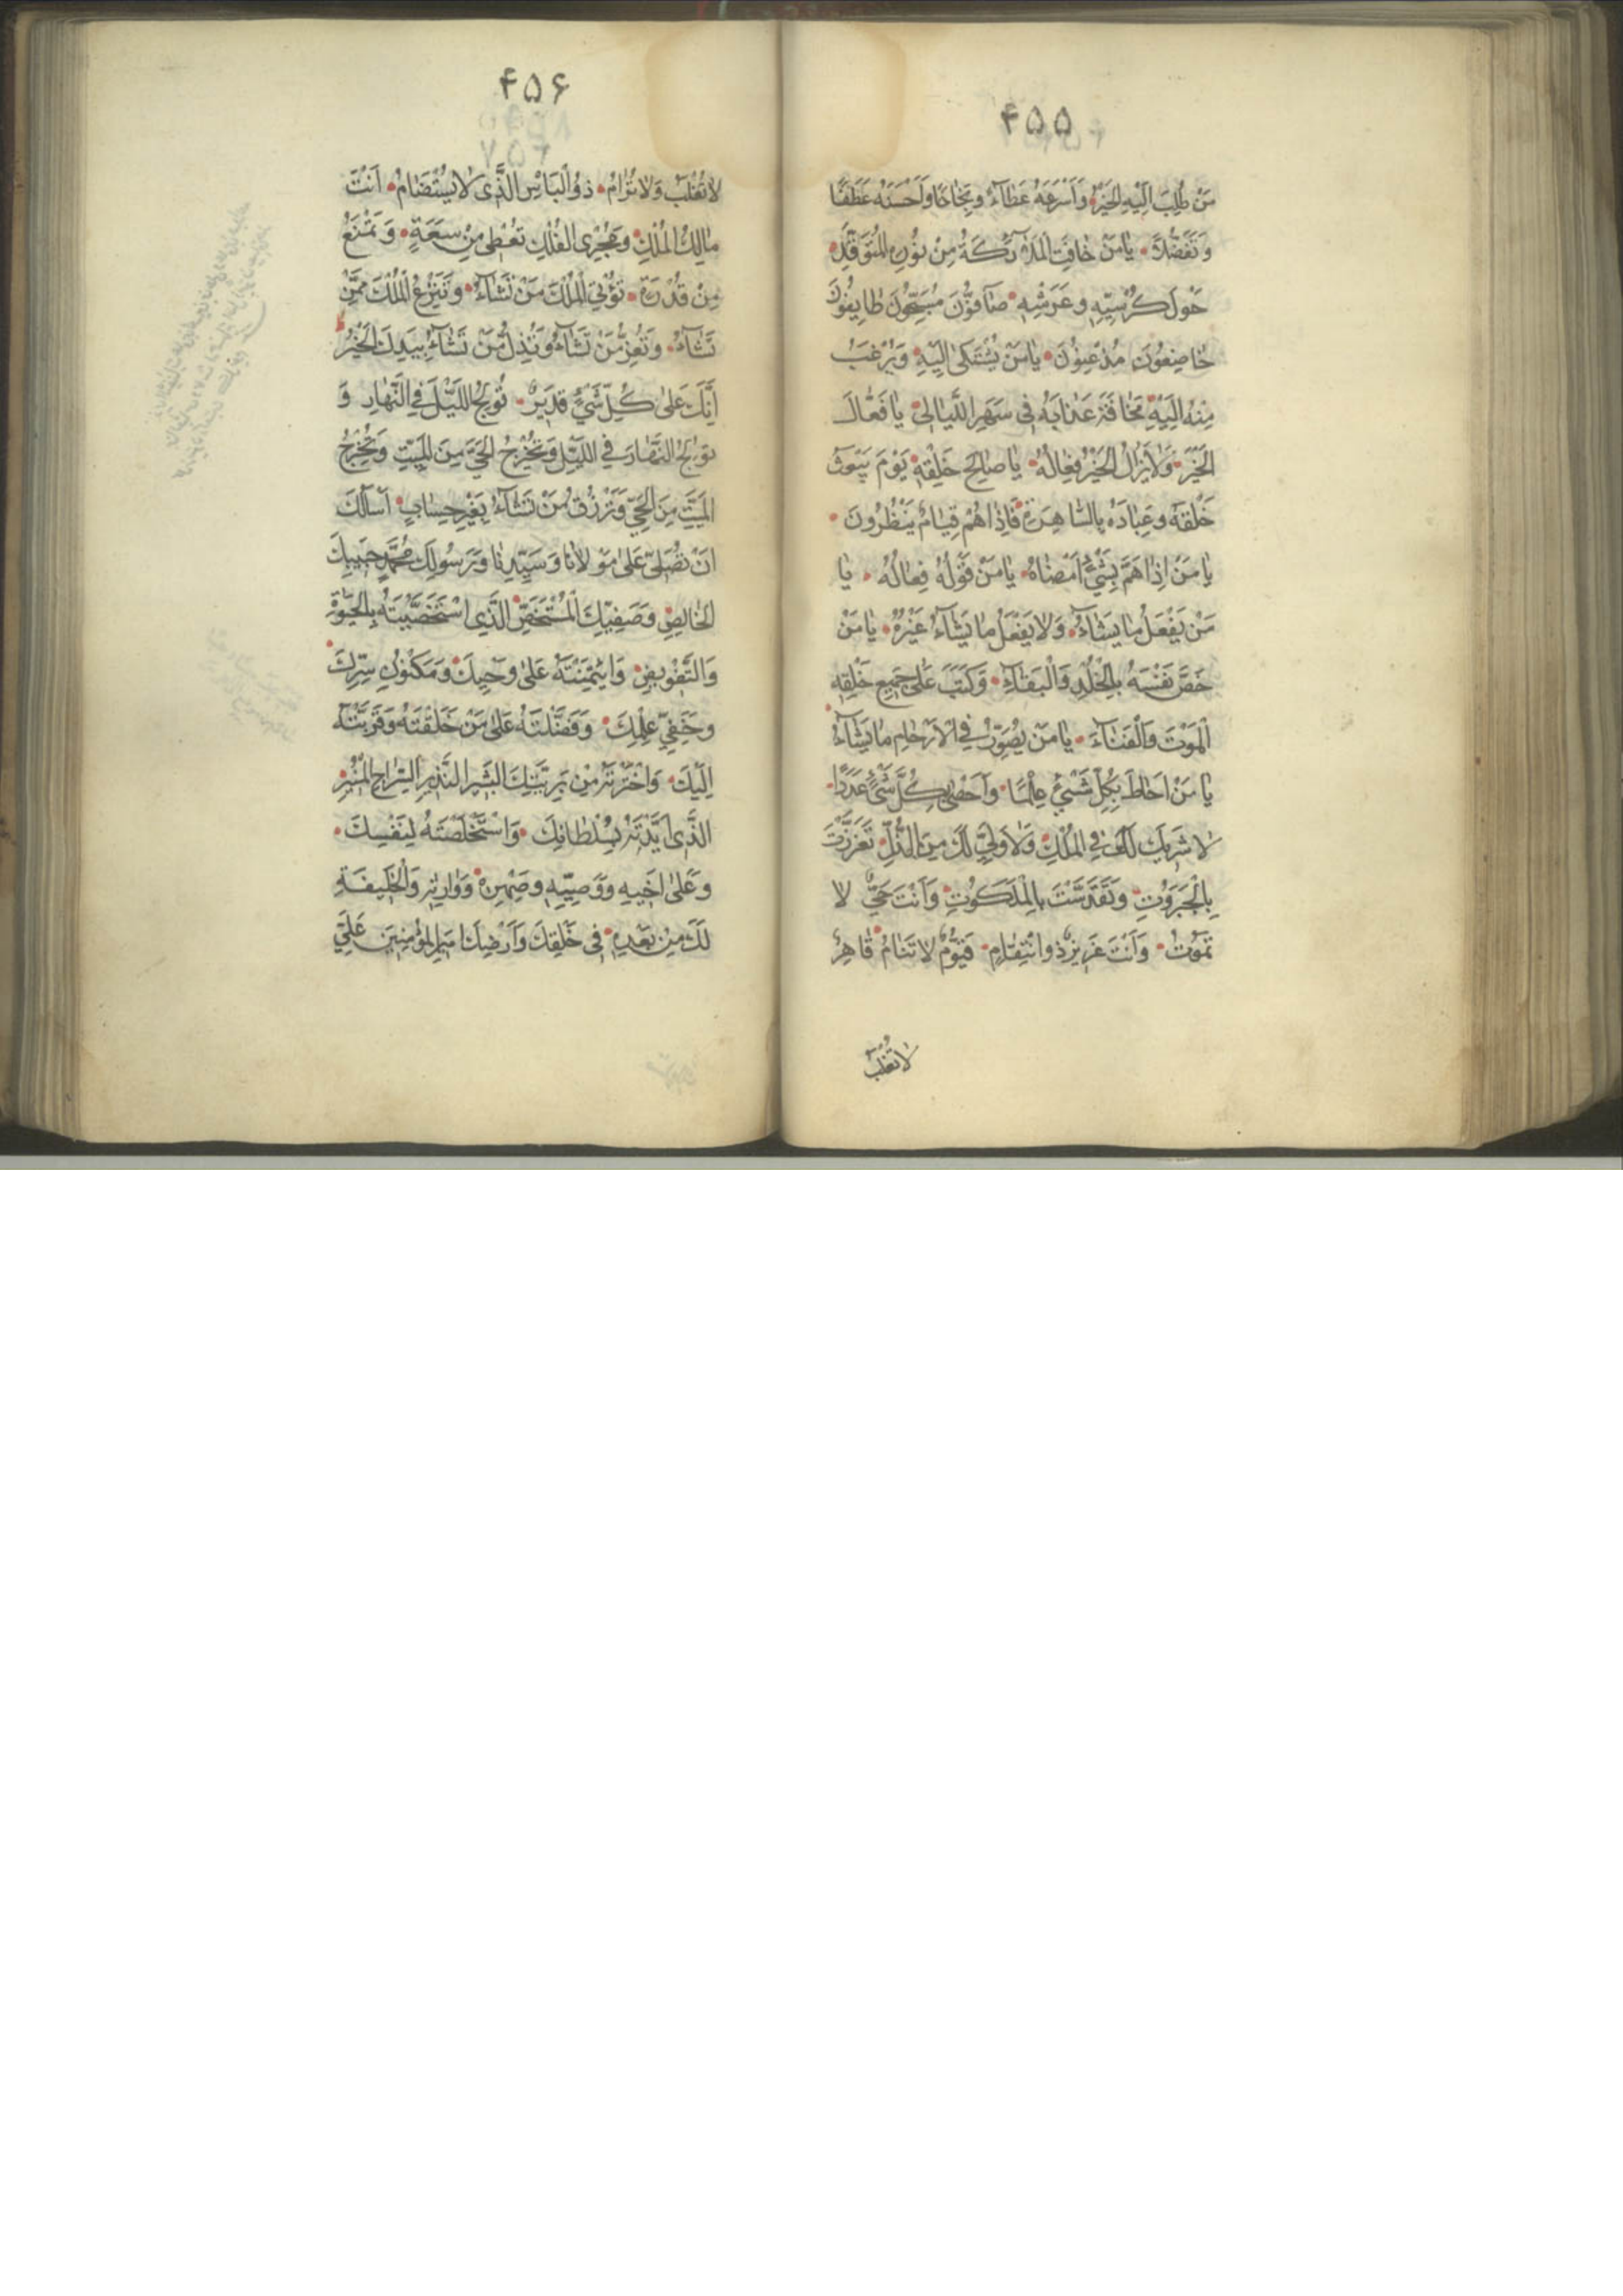 ۴۵۵
مَنْ طُلِبَ اِلَيْهِ الْخَيْرُ وَاَسْرَعَهُ عَطٰآءً وَنَجٰاحًا وَاَحْسَنَهُ عَطْفًا
وَتَفَضُّلًا يٰا مَنْ خٰافَتِ الْمَلٰآئِكَةُ مِنْ نُورِهِ الْمُتَوَقِّدِ
حَوْلَ كُرْسِيِّهِ وَعَرْشِهِ صٰآفُّونَ مُسَبِّحُونَ طٰايِفُونَ
خٰاضِعُونَ مُذْعِنُونَ يٰا مَنْ يُشْتَكىٰ اِلَيْهِ وَيُرْغَبُ
مِنْهُ اِلَيْهِ مَخٰافَةَ عَذٰابِهِ فِى سَهَرِ اللَّيٰالِى يٰا فَعّٰالَ
الْخَيْرِ وَلاٰ يَزٰالُ الْخَيْرُ فِعٰالُهُ يٰا صٰالِحَ خَلْقِهِ يَوْمَ يَبْعَثُ
خَلْقَهُ وَعِبٰادَهُ بِالسّٰاهِرَةِ فَاِذٰا هُمْ قِيٰامٌ يَنْظُرُونَ
يٰا مَنْ اِذٰا هَمَّ بِشَيْءٍ اَمْضٰاهُ يٰا مَنْ قَوْلُهُ فِعٰالُهُ يٰا
مَنْ يَفْعَلُ مٰا يَشٰآءُ وَلاٰ يَفْعَلُ مٰا يَشٰآءُ غَيْرُهُ يٰا مَنْ
خَصَّ نَفْسَهُ بِالْخُلْدِ وَالْبَقٰآءِ وَكَتَبَ عَلىٰ جَمِيعِ خَلْقِهِ
الْمَوْتَ وَالْفَنٰآءَ يٰا مَنْ يُصَوِّرُ فِى الْاَرْحٰامِ مٰا يَشٰآءُ
يٰا مَنْ اَحٰاطَ بِكُلِّ شَيْءٍ عِلْمًا وَاَحْصىٰ كُلَّ شَيْءٍ عَدَدًا
لاٰ شَرِيكَ لَكَ فِى الْمُلْكِ وَلاٰ وَلِيَّ لَكَ مِنَ الذُّلِّ تَعَزَّزْتَ
بِالْجَبَرُوتِ وَتَقَدَّسْتَ بِالْمَلَكُوتِ وَاَنْتَ حَيٌّ لاٰ
تَمُوتُ وَاَنْتَ عَزِيزٌ ذُو انْتِقٰامٍ قَيُّومٌ لاٰ تَنٰامُ قٰاهِرٌ
لاٰ تُغْلَبُ
۴۵۶
لاٰ تُغْلَبُ وَلاٰ تُرٰامُ ذُو الْبَاْسِ الَّذِى لاٰ يُسْتَضٰامُ اَنْتَ
مٰالِكُ الْمُلْكِ وَمُجْرِى الْفُلْكِ تُعْطِى مِنْ سَعَةٍ وَتَمْنَعُ
مِنْ قُدْرَةٍ تُؤْتِى الْمُلْكَ مَنْ تَشٰآءُ وَتَنْزِعُ الْمُلْكَ مِمَّنْ
تَشٰآءُ وَتُعِزُّ مَنْ تَشٰآءُ وَتُذِلُّ مَنْ تَشٰآءُ بِيَدِكَ الْخَيْرُ
اِنَّكَ عَلىٰ كُلِّ شَيْءٍ قَدِيرٌ تُولِجُ اللَّيْلَ فِى النَّهٰارِ وَ
تُولِجُ النَّهٰارَ فِى اللَّيْلِ وَتُخْرِجُ الْحَيَّ مِنَ الْمَيِّتِ وَتُخْرِجُ
الْمَيِّتَ مِنَ الْحَيِّ وَتَرْزُقُ مَنْ تَشٰآءُ بِغَيْرِ حِسٰابٍ اَسْاَلُكَ
اَنْ تُصَلِّىَ عَلىٰ مَوْلاٰنٰا وَسَيِّدِنٰا وَرَسُولِكَ مُحَمَّدٍ حَبِيبِكَ
الْخٰالِصِ وَصَفِيِّكَ الْمُسْتَخَصِّ الَّذِى اسْتَخْصَصْتَهُ بِالْحَيٰوةِ
وَالتَّفْوِيضِ وَائْتَمَنْتَهُ عَلىٰ وَحْيِكَ وَمَكْنُونِ سِرِّكَ
وَخَفِيِّ عِلْمِكَ وَفَضَّلْتَهُ عَلىٰ مَنْ خَلَقْتَهُ وَقَرَّبْتَهُ
اِلَيْكَ وَاخْتَرْتَهُ مِنْ بَرِيَّتِكَ الْبَشِيرِ النَّذِيرِ السِّرٰاجِ الْمُنِيرِ
الَّذِى اَيَّدْتَهُ بِسُلْطٰانِكَ وَاسْتَخْلَصْتَهُ لِنَفْسِكَ
وَعَلىٰ اَخِيهِ وَوَصِيِّهِ وَصِهْرِهِ وَوٰارِثِهِ وَالْخَلِيفَةِ
لَكَ مِنْ بَعْدِهِ فِى خَلْقِكَ وَاَرْضِكَ اَمِيرِ الْمُؤْمِنِينَ عَلِيِّ